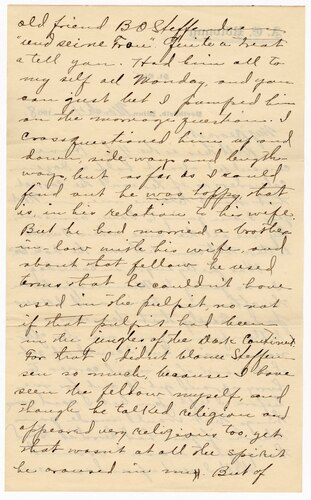 old friend B O Steffensen
"und seine Frau" Quite a treat
I tell you. Had him all to
myself all Monday, and you
can just bet I pumped him
on the marriage question. I
crossquestioned him up and
down, side ways and length-
ways, but as far as I could
find out he was happy, that
is, in his relation to his wife.
But he had married a brother
in-law with his wife, and
about that fellow he used
terms that he couldn't have
used in the pulpit, no not
if that pulpit had been
in the jungles of the Dark Continent
For that I didn't blame Steffen-
sen so much, because I have
seen the fellow myself, and
though he talked religion and
appeared very religious too, yet
that wasn't at all the spirit
he aroused in me. But of